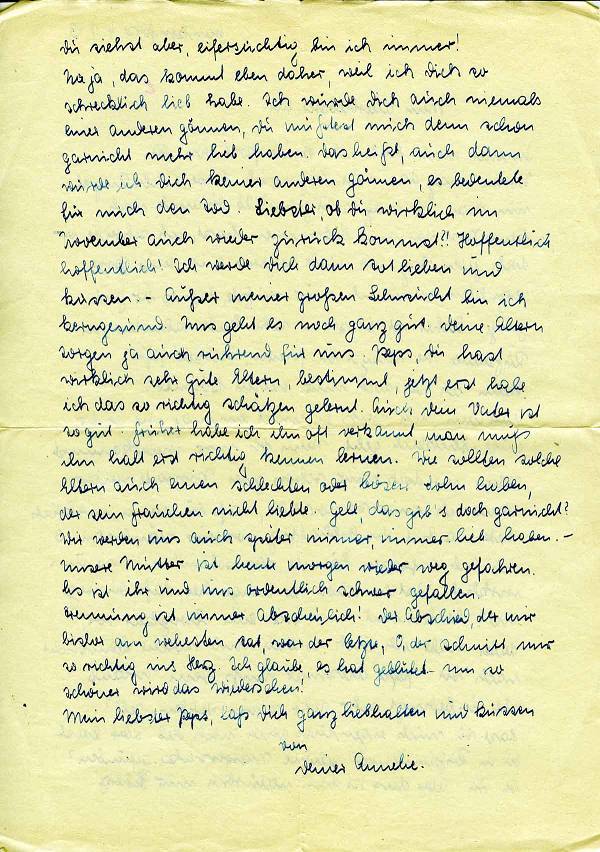 du siehst aber, eifersüchtig bin ich immer!
Na ja, das kommt eben daher, weil ich dich so
schrecklich lieb habe. Ich würde dich auch niemals
einer anderen gönnen, du müßtest mich denn schon
garnicht mehr lieb haben. das heißt, auch dann
würde ich dich keiner anderen gönnen, es bedeutete
für mich den Tod. Liebster, ob du wirklich im
November auch wieder zurück kommst?! Hoffentlich
hoffentlich! Ich werde dich dann tot lieben und
küssen. - Außer meiner großen Sehnsucht bin ich
kerngesund. Uns geht es noch ganz gut. deine Eltern
sorgen ja auch rührend für uns. Peps, du hast
wirklich sehr gute Eltern, bestimmt, jetzt erst habe
ich das so richtig schätzen gelernt. Auch dein Vater ist
so gut. früher habe ich ihn oft verkannt, man muß
ihn halt erst richtig kennen lernen. Wie sollten solche
Eltern auch einen schlechten oder bösen Sohn haben,
der sein Frauchen nicht liebte. Gell, das gib's doch garnicht?
Wir werden uns auch später immer, immer lieb haben. -
Unsere Mutter ist heute morgen wieder weg gefahren.
Es ist ihr und uns ordentlich schwer gefallen.
Trennung ist immer abscheulich! der Abschied, der mir
bisher am wehesten tat, war der letzte, O, der schnitt mir
so richtig ins Herz. Ich glaube, es hat geblutet - um so
schöner wird das Wiedersehen!
Mein liebster Peps, laß dich ganz liebhalten und küssen
von
deiner Annelie.